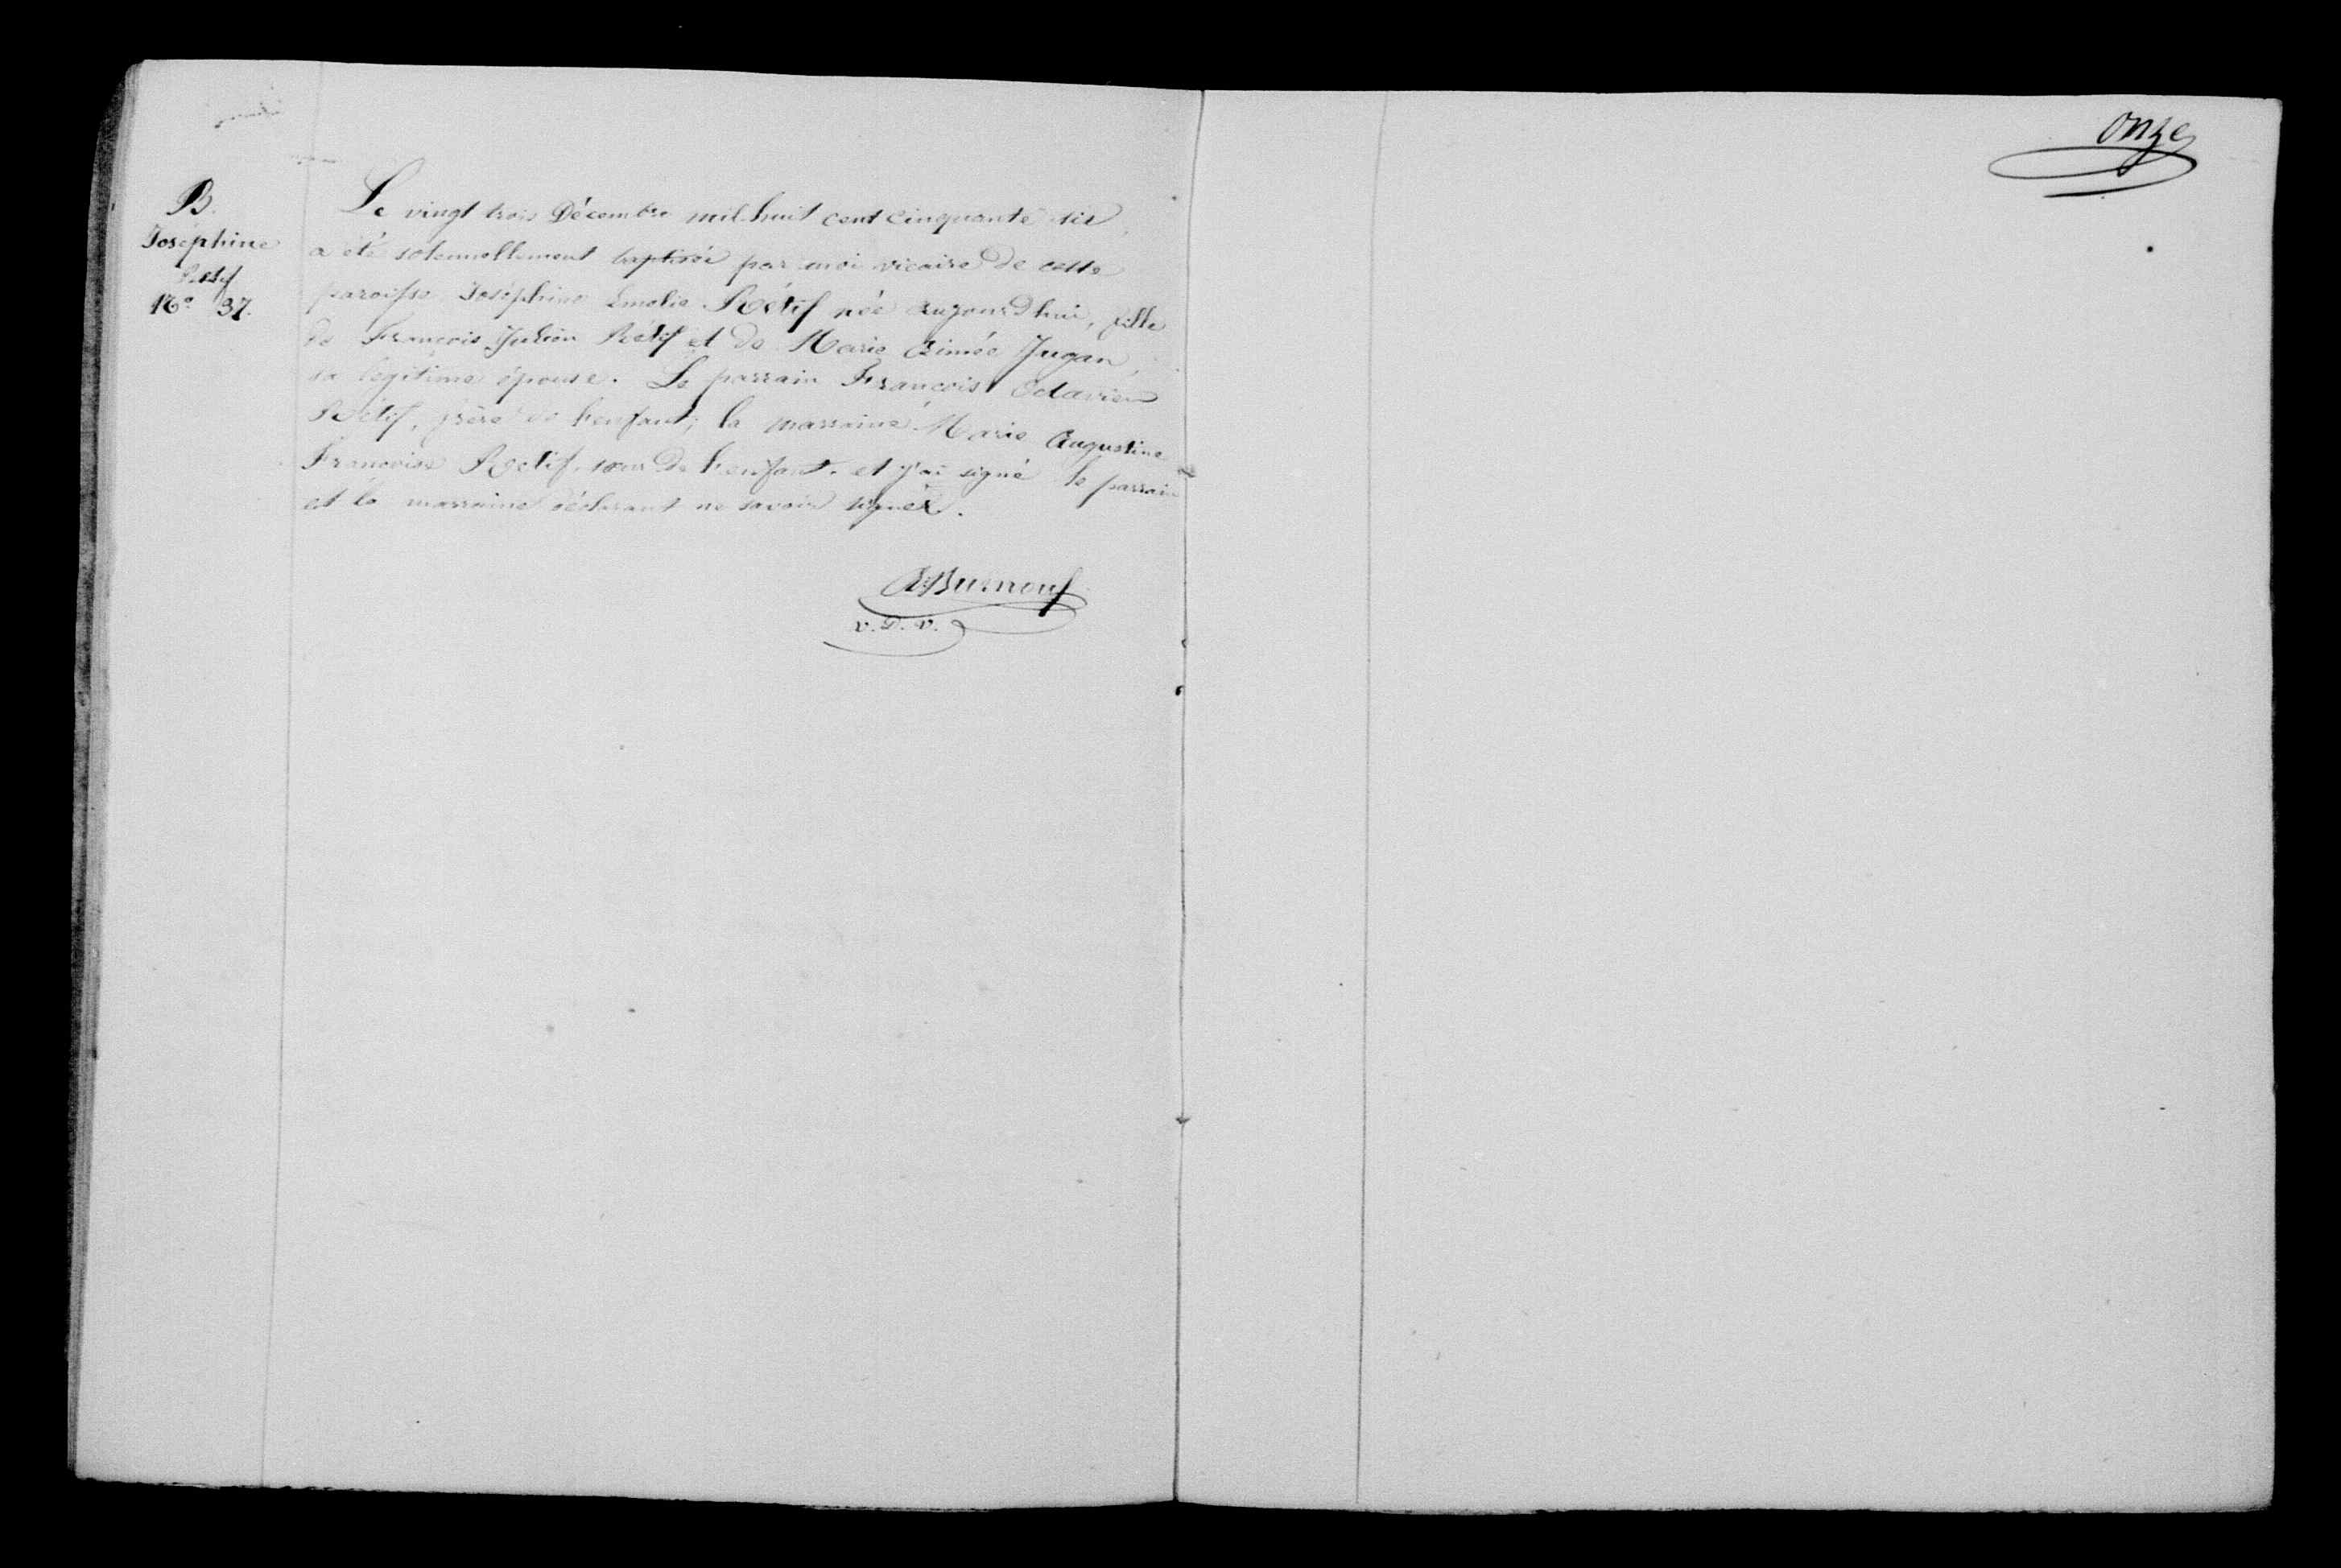 B.
Joséphine
Rétif
No 37.
Le vingt trois Décembre mil huit cent cinquante six,
a été solennellement baptisée par moi vicaire de cette
paroisse Joséphine Emelie Rétif née aujourd'hui, fille
de François Julien Rétif et de Marie Aimée Jugan,
sa légitime épouse. Le parrain François Octavien
Rétif, frère de l'enfant; la marraine Marie Augustine
Françoise Rétif, sœur de l'enfant. et j'ai signé le parrain
et la marraine déclarant ne savoir signer.
Burnouf
v. D. v.
onze